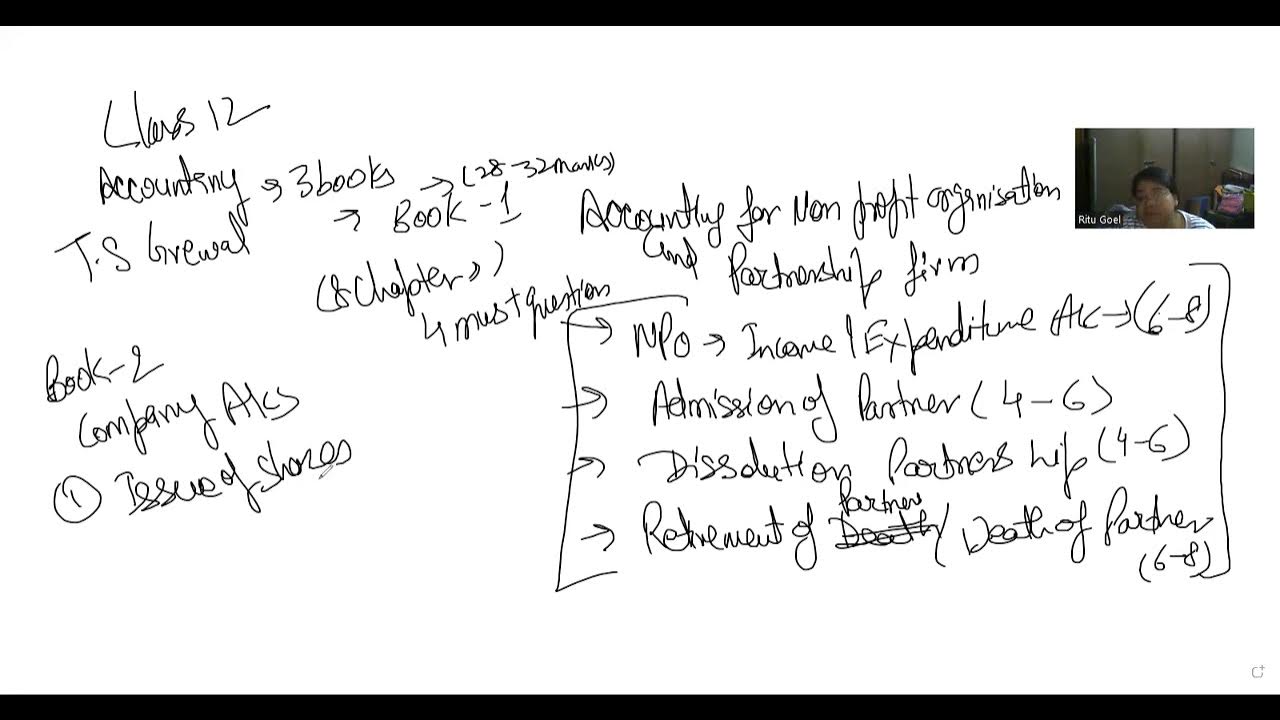 Class 12
Accounting → 3 books → (28-32 marks)
T.S Grewal → Book-1
(8 Chapters)
4 must question
Accounting for Non profit organisation
and Partnership firm
→ NPO → Income / Expenditure A/c → (6-8)
→ Admission of Partner (4-6)
→ Dissolution Partnership (4-6)
→ Retirement of Partner / Death of Partner
(6-8)
Book-2
Company A/cs
① Issue of Shares
Ritu Goel